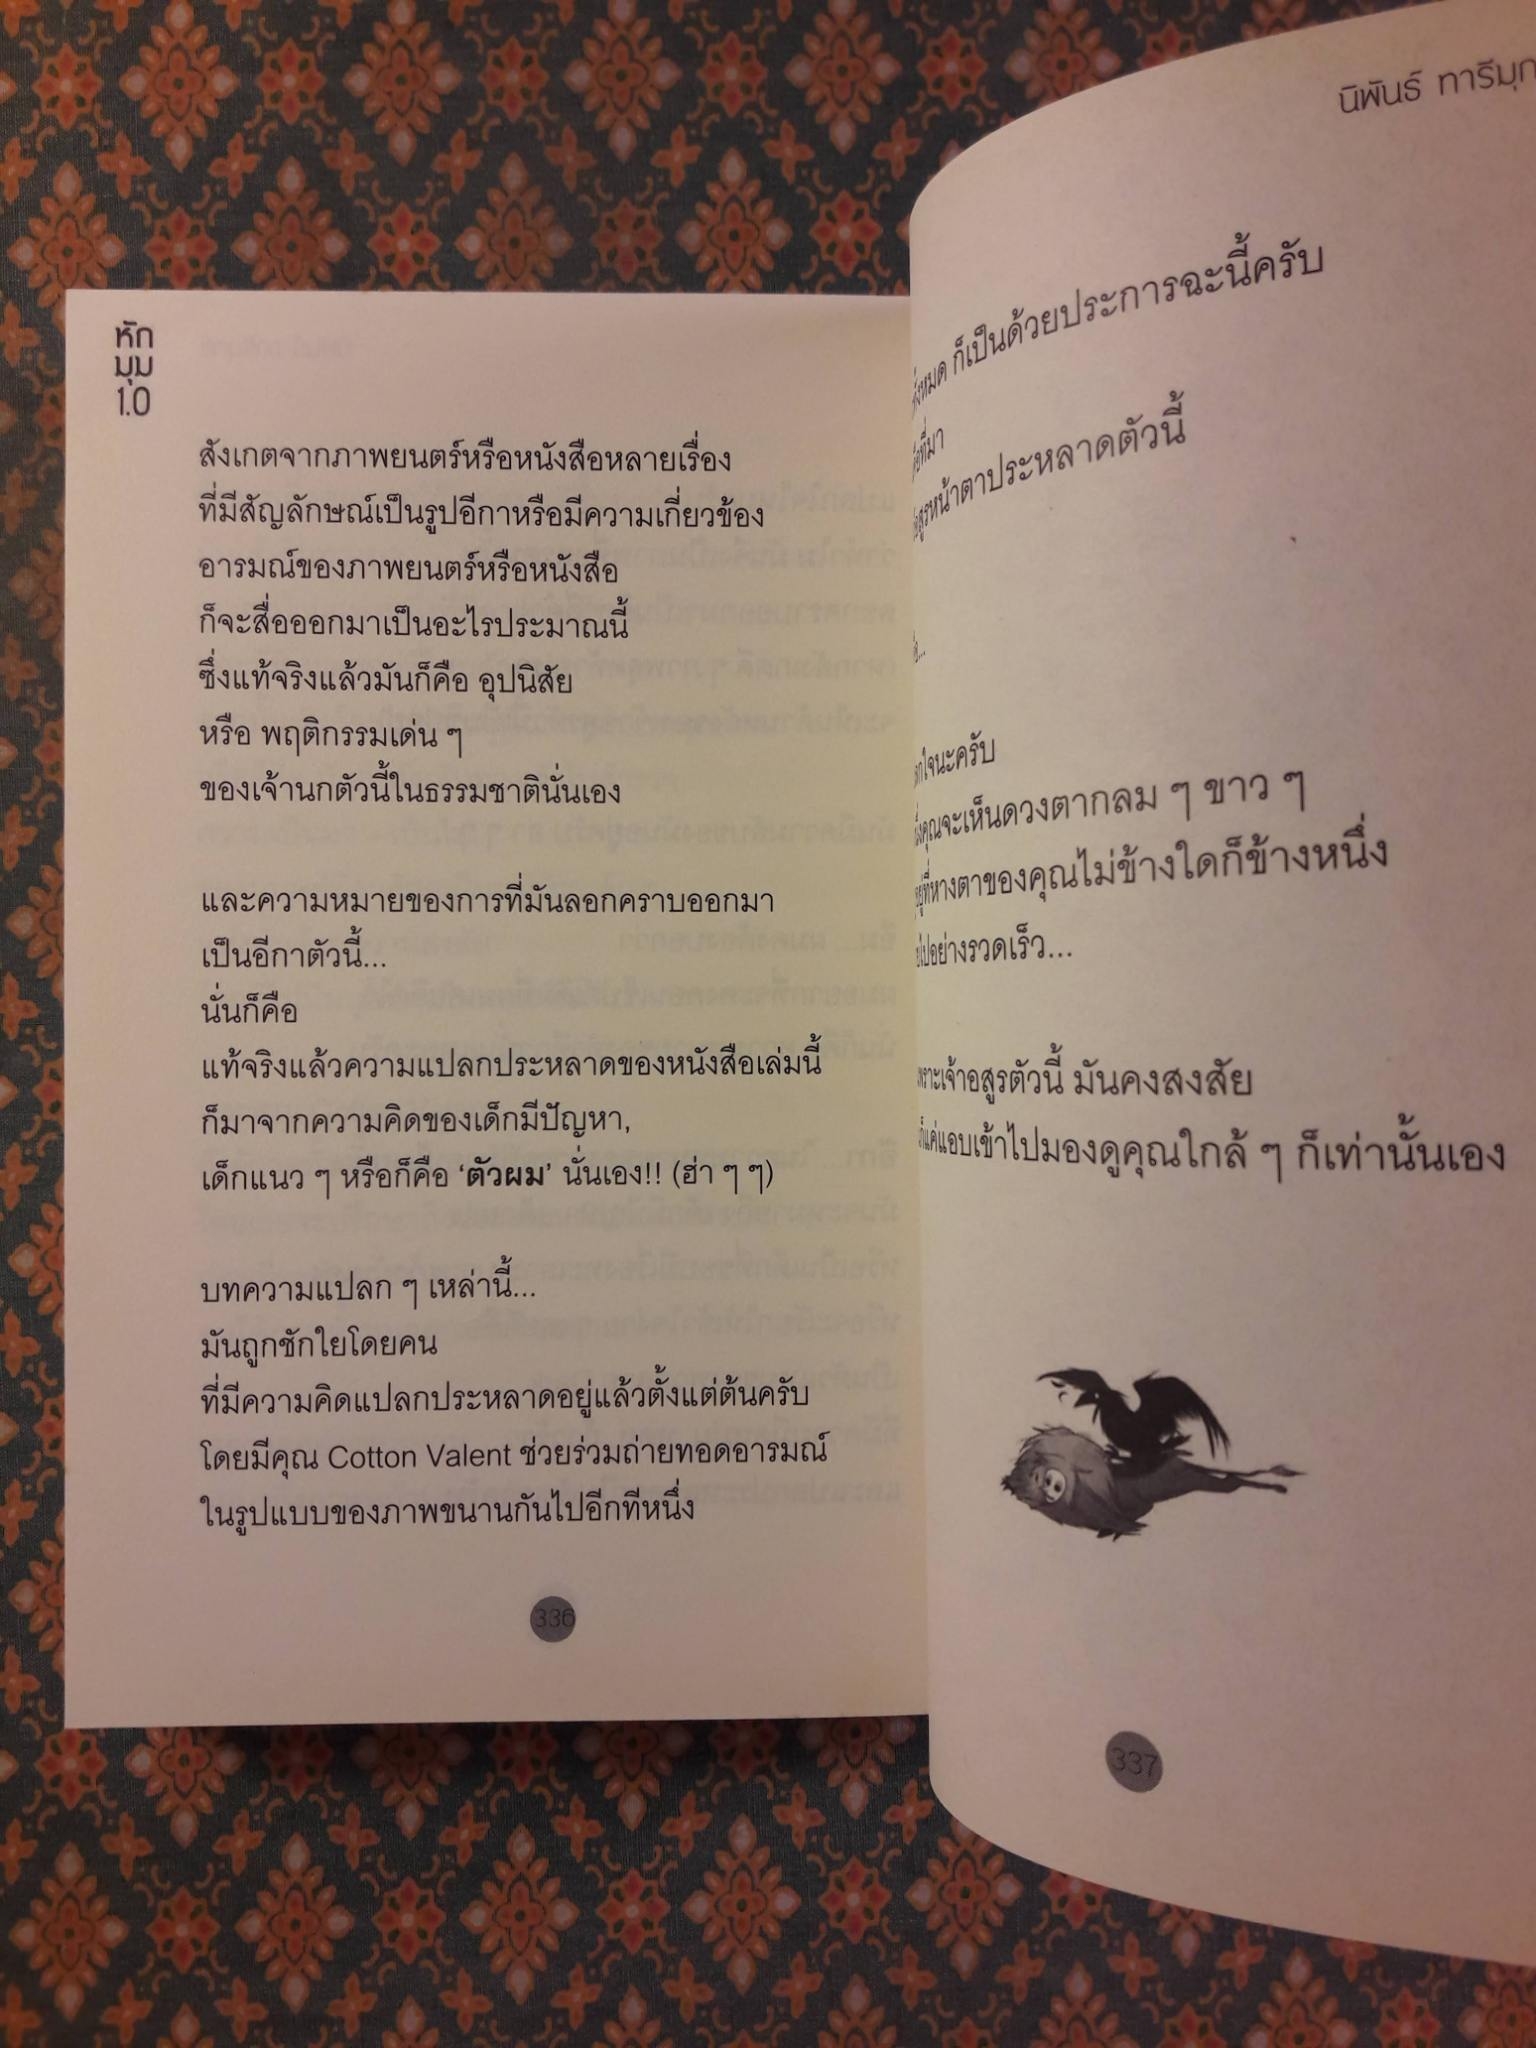 หัก
มุม
1.0
สังเกตจากภาพยนตร์หรือหนังสือหลายเรื่อง
ที่มีสัญลักษณ์เป็นรูปอีกาหรือมีความเกี่ยวข้อง
อารมณ์ของภาพยนตร์หรือหนังสือ
ก็จะสื่อออกมาเป็นอะไรประมาณนี้
ซึ่งแท้จริงแล้วมันก็คือ อุปนิสัย
หรือ พฤติกรรมเด่น ๆ
ของเจ้านกตัวนี้ในธรรมชาตินั่นเอง
และความหมายของการที่มันลอกคราบออกมา
เป็นอีกาตัวนี้...
นั่นก็คือ
แท้จริงแล้วความแปลกประหลาดของหนังสือเล่มนี้
ก็มาจากความคิดของเด็กมีปัญหา,
เด็กแนว ๆ หรือก็คือ ‘ตัวผม’ นั่นเอง!! (ฮ่า ๆ ๆ)
บทความแปลก ๆ เหล่านี้...
มันถูกชักใยโดยคน
ที่มีความคิดแปลกประหลาดอยู่แล้วตั้งแต่ต้นครับ
โดยมีคุณ Cotton Valent ช่วยร่วมถ่ายทอดอารมณ์
ในรูปแบบของภาพขนานกันไปอีกทีหนึ่ง
336
นิพันธ์ ทารีมุก
ทั้งหมด ก็เป็นด้วยประการฉะนี้ครับ
ที่มา
อสูรหน้าตาประหลาดตัวนี้
ตกใจนะครับ
คุณจะเห็นดวงตากลม ๆ ขาว ๆ
อยู่ที่หางตาของคุณไม่ข้างใดก็ข้างหนึ่ง
ไปอย่างรวดเร็ว...
เพราะเจ้าอสูรตัวนี้ มันคงสงสัย
ก็แค่แอบเข้าไปมองดูคุณใกล้ ๆ ก็เท่านั้นเอง
337